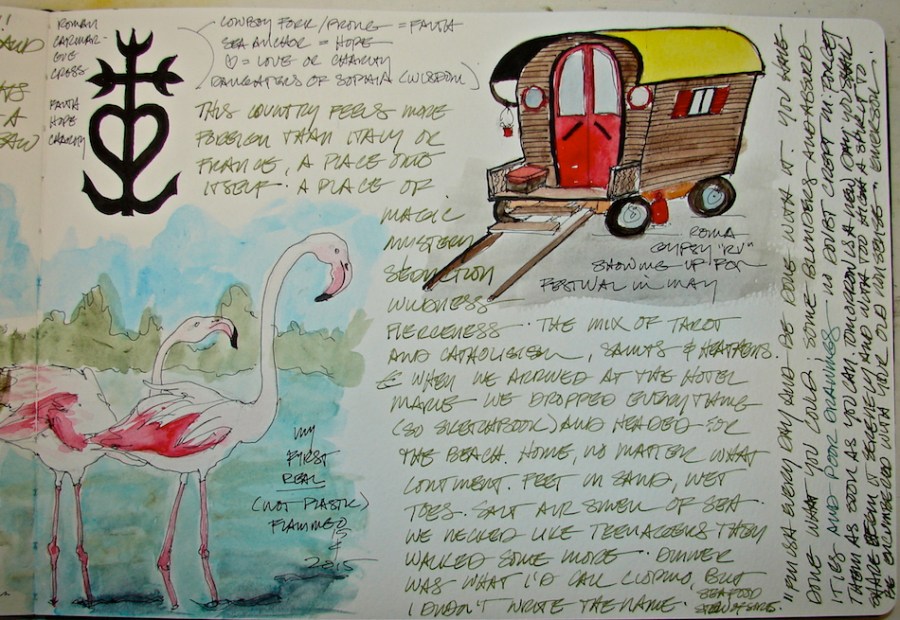 ROMAN
CAMMAR-
GUE
CROSS
FAITH
HOPE
CHARITY
COWBOY FORK / PRONG = FAITH
SEA ANCHOR = HOPE
♡ = LOVE OR CHARITY
DAUGHTERS OF SOPHIA (WISDOM)
THIS COUNTRY FEELS MORE
FOREIGN THAN ITALY OR
FRANCE, A PLACE INTO
ITSELF. A PLACE OF
MAGIC
MYSTERY
SEDUCTION
WILDNESS
FIERCENESS. THE MIX OF TAROT
AND CATHOLICISM, SAINTS & HEATHENS.
WHEN WE ARRIVED AT THE HOTEL
MARIE WE DROPPED EVERYTHING
(SO SKETCHBOOK) AND HEADED FOR
THE BEACH. HOME, NO MATTER WHAT
CONTINENT. FEET IN SAND, WET
TOES. SALT AIR SMELL OF SEA.
WE NECKED LIKE TEENAGERS THEN
WALKED SOME MORE. DINNER
WAS WHAT I'D CALL CIOPINO, BUT
I DIDN'T WRITE THE NAME. SEAFOOD
STEW OF SORTS.
ROMA
GYPSY "RV"
SHOWING UP FOR
FESTIVAL IN MAY
MY
FIRST
REAL
(NOT PLASTIC)
FLAMINGO
15
4
2015
"FINISH EVERY DAY AND BE DONE WITH IT. YOU HAVE
DONE WHAT YOU COULD; SOME BLUNDERS AND ABSURD-
ITIES AND POOR DRAWINGS NO DOUBT CREPT IN. FORGET
THEM AS SOON AS YOU CAN. TOMORROW IS A NEW DAY. YOU SHALL
BEGIN IT SERENELY AND WITH TOO HIGH A SPIRIT TO
BE ENCUMBERED WITH YOUR OLD NONSENSE. EMERSON.